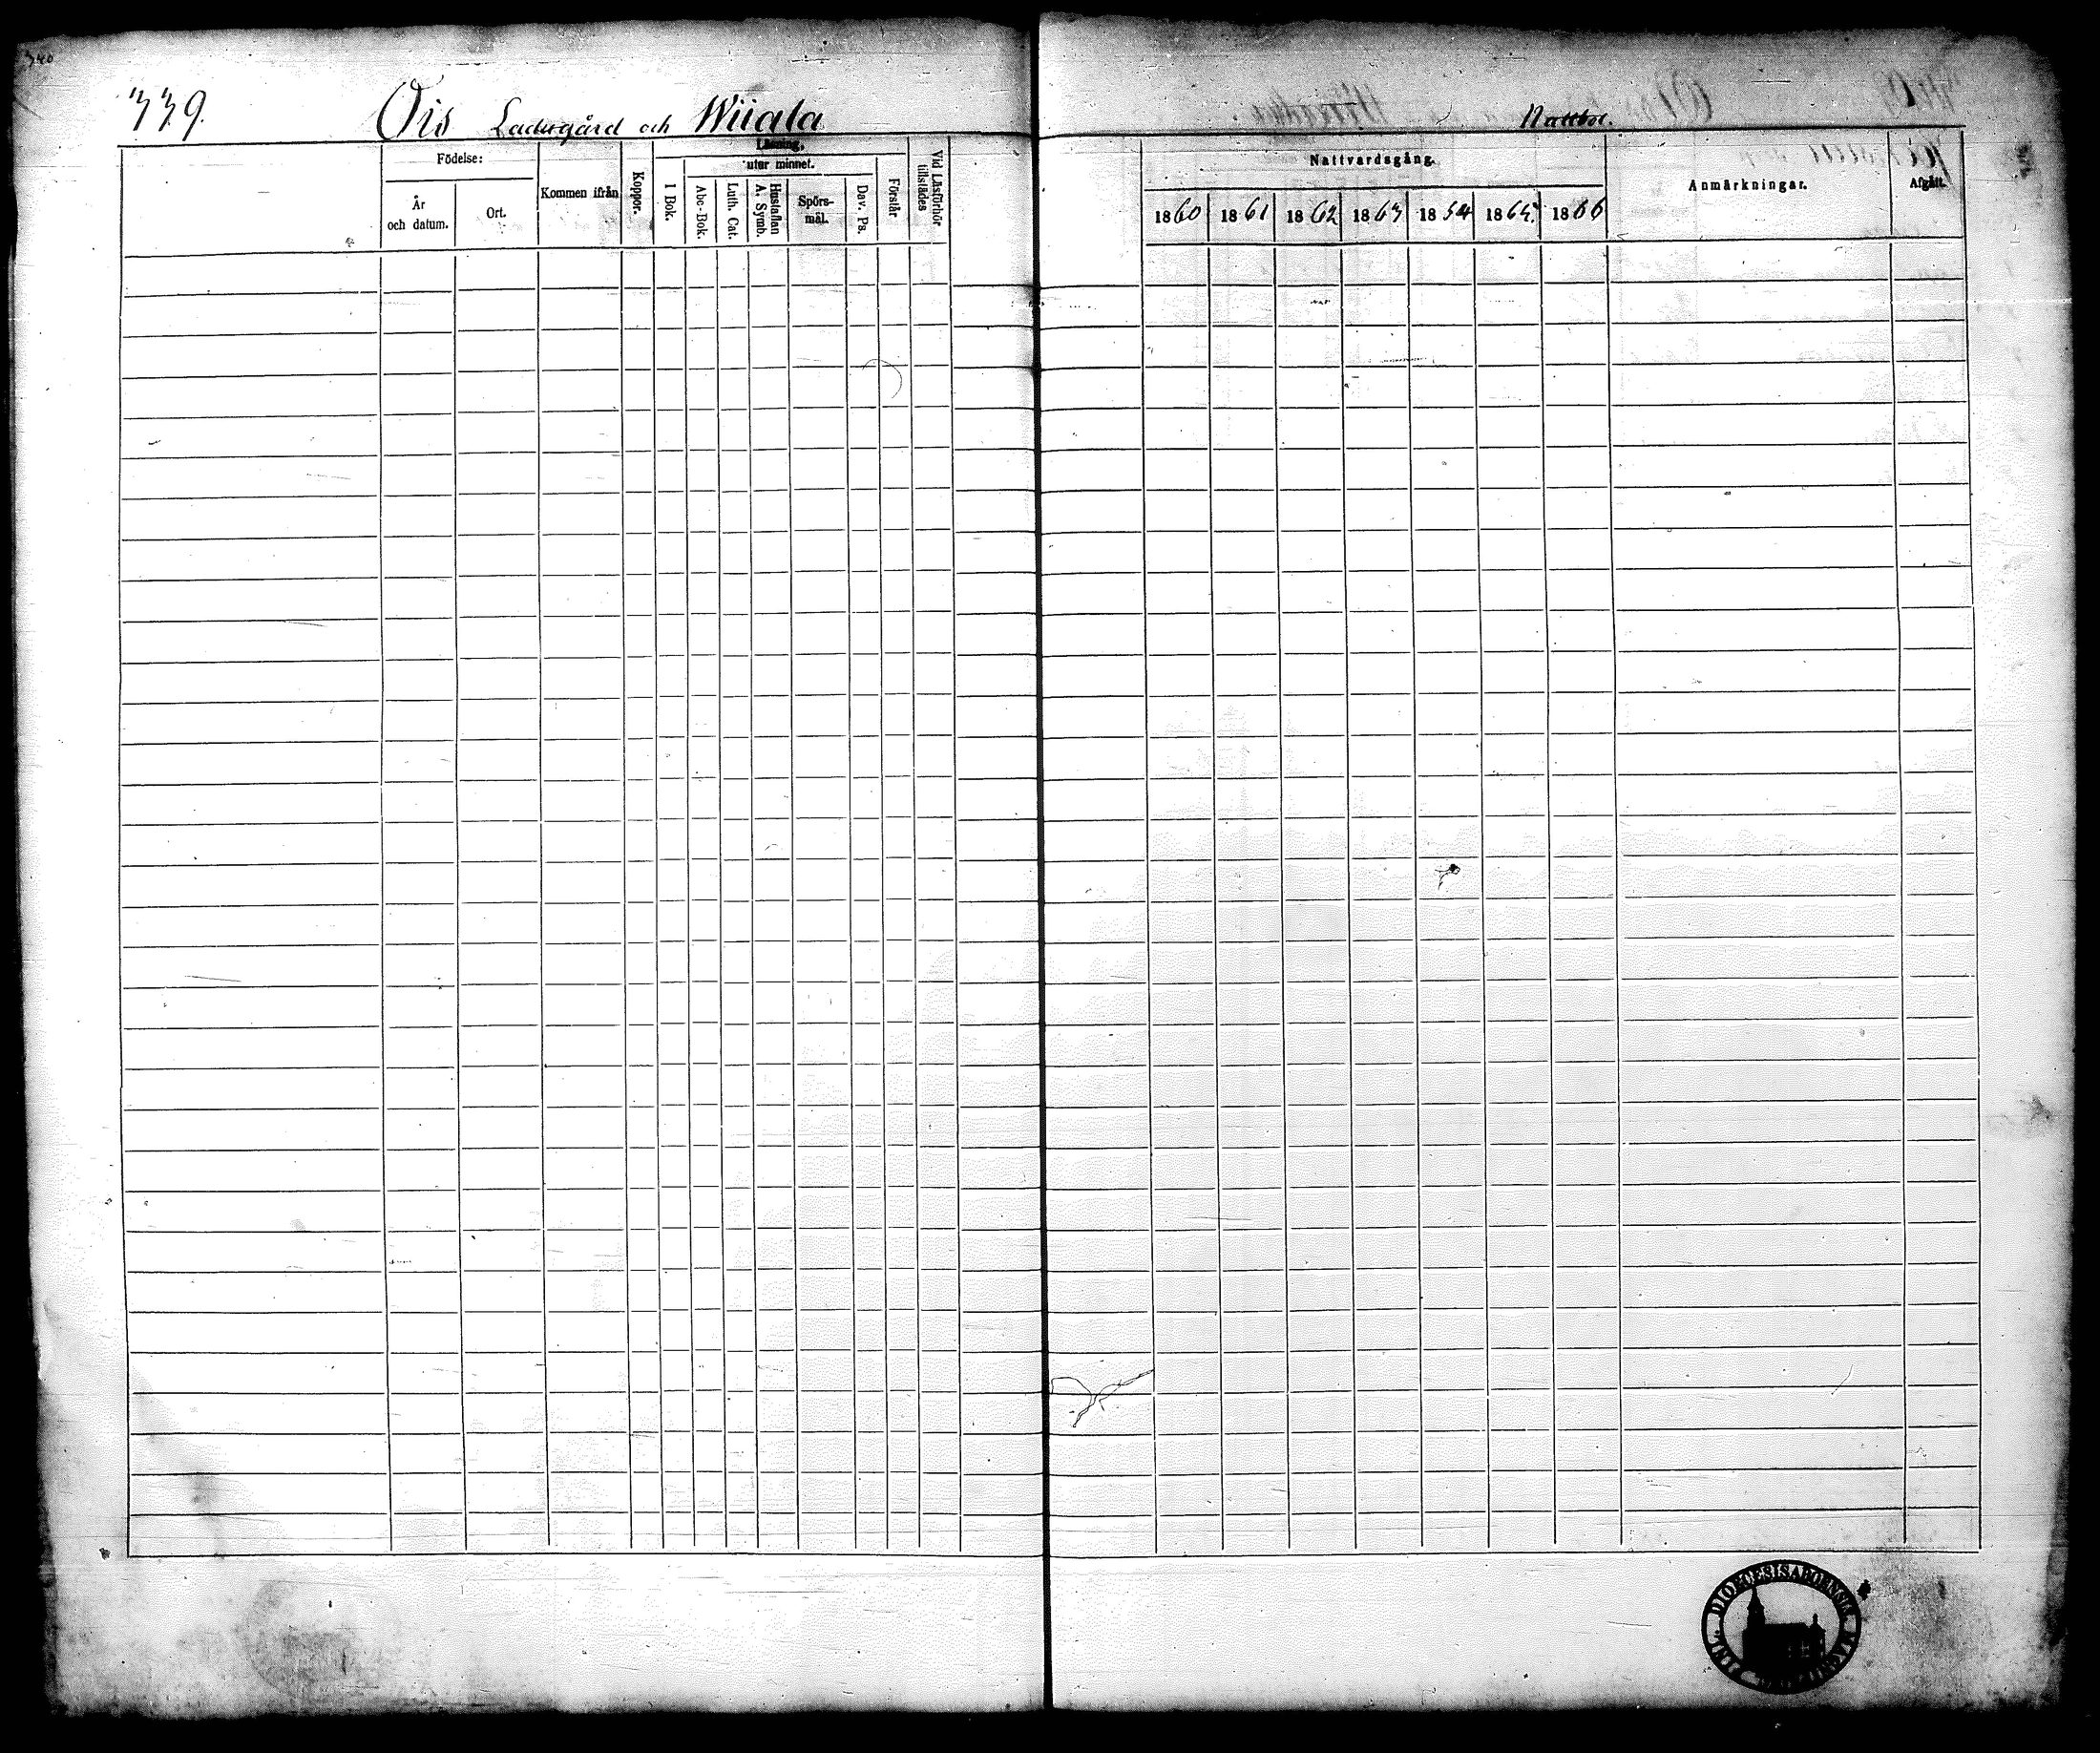 340
339.
Öis Ladugård och Wiiala
Födelse:
År
och datum.
Ort.
Kommen ifrån
Koppor.
Läsning,
utur minnet.
I Bok.
Abc-Bok.
Luth. Cat.
Hustaflan
A. Symb.
Spörs-
mål.
Dav. Ps.
Förstår
Vid Läsförhör
tillstädes
Nattvardsgång.
1860 1861 1862 1863 1864 1865. 1866
Anmärkningar.
Afgått.
DIOECESIS ABOENSIS